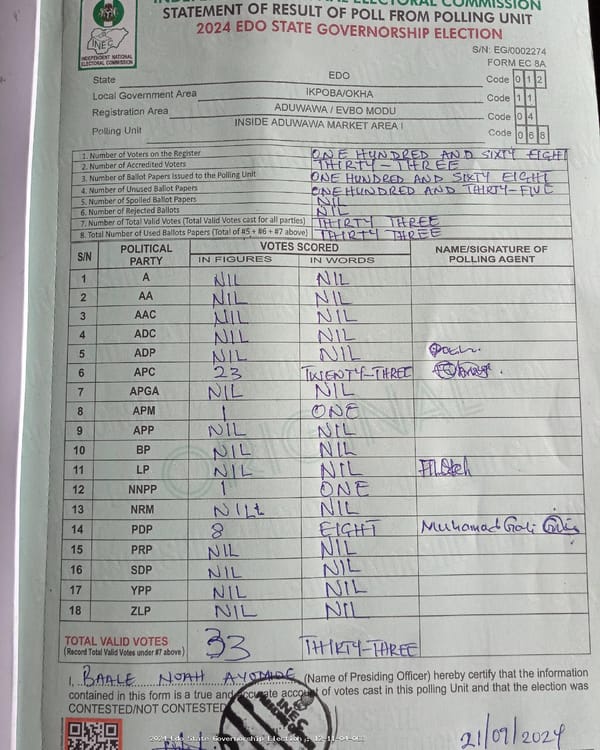 INDEPENDENT NATIONAL ELECTORAL COMMISSION
STATEMENT OF RESULT OF POLL FROM POLLING UNIT
2024 EDO STATE GOVERNORSHIP ELECTION
INEC
INDEPENDENT NATIONAL
ELECTORAL COMMISSION
S/N: EG/0002274
FORM EC 8A
State EDO Code 0 1 2
Local Government Area IKPOBA/OKHA Code 1 1
Registration Area ADUWAWA / EVBO MODU Code 0 4
Polling Unit INSIDE ADUWAWA MARKET AREA I Code 0 6 8
1. Number of Voters on the Register ONE HUNDRED AND SIXTY EIGHT
2. Number of Accredited Voters THIRTY-THREE
3. Number of Ballot Papers Issued to the Polling Unit ONE HUNDRED AND SIXTY EIGHT
4. Number of Unused Ballot Papers ONE HUNDRED AND THIRTY-FIVE
5. Number of Spoiled Ballot Papers NIL
6. Number of Rejected Ballots NIL
7. Number of Total Valid Votes (Total Valid Votes cast for all parties) THIRTY THREE
8. Total Number of Used Ballots Papers (Total of #5 + #6 + #7 above) THIRTY THREE
S/N POLITICAL PARTY VOTES SCORED NAME/SIGNATURE OF POLLING AGENT
IN FIGURES IN WORDS
1 A NIL NIL
2 AA NIL NIL
3 AAC NIL NIL
4 ADC NIL NIL
5 ADP NIL NIL
6 APC 23 TWENTY-THREE
7 APGA NIL NIL
8 APM 1 ONE
9 APP NIL NIL
10 BP NIL NIL
11 LP NIL NIL
12 NNPP 1 ONE
13 NRM NIL NIL
14 PDP 8 EIGHT Muhamad
15 PRP NIL NIL
16 SDP NIL NIL
17 YPP NIL NIL
18 ZLP NIL NIL
TOTAL VALID VOTES 33 THIRTY-THREE
(Record Total Valid Votes under #7 above)
I, BAALE NOAH AYOMIDE (Name of Presiding Officer) hereby certify that the information
contained in this form is a true and accurate account of votes cast in this polling Unit and that the election was
CONTESTED/NOT CONTESTED
INEC
2024 Edo State Governorship Election
21/09/2024
ORIGINAL